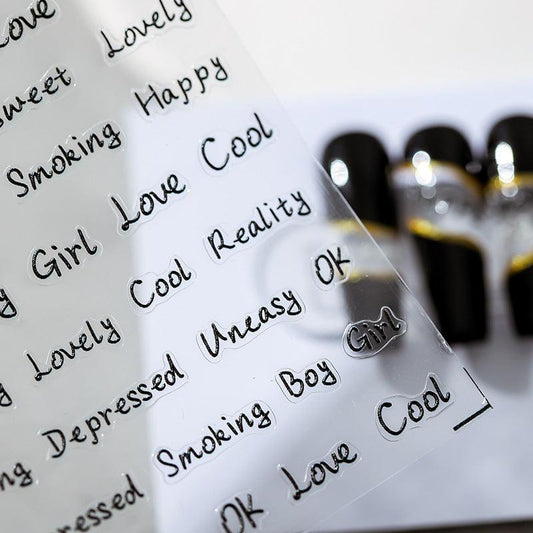 Love Lovely
Sweet Happy
Smoking Cool
Girl Love
Cool Reality
Lovely Uneasy OK
Depressed Boy Girl
Smoking Cool
Love
OK